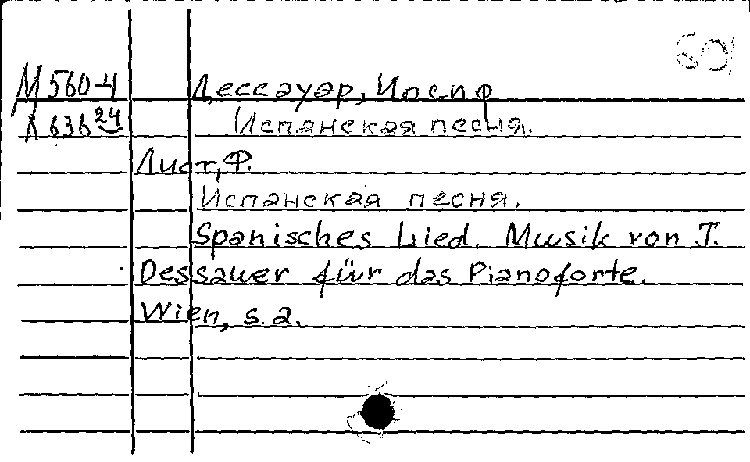 М560-4 Дессауэр, Иосиф
Испанская песня.
Лист, Ф.
Испанская песня.
Spanisches Lied. Musik von J.
Dessauer für das Pianoforte.
Wien, s.a.